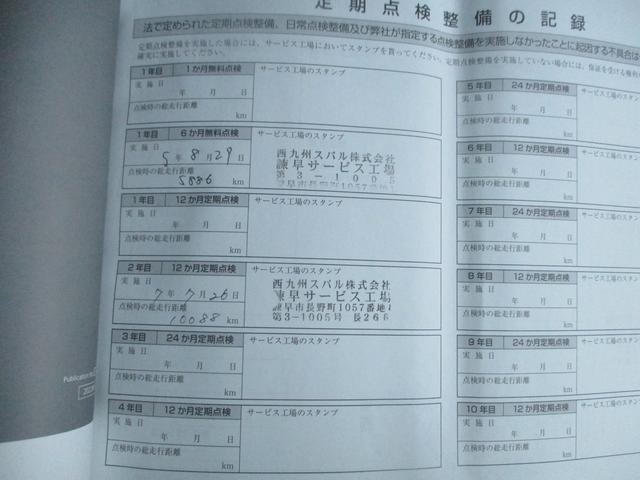 定期点検整備の記録
法で定められた定期点検整備、日常点検整備及び弊社が指定する点検整備を実施しなかったことに起因する不具合は
定期点検整備を実施した場合には、サービス工場においてスタンプを貰ってください。定期点検整備を実施していない場合には、保証を受ける権利
確実に実施してください。
1年目 1か月無料点検 サービス工場のスタンプ
実施日
年 月 日
点検時の総走行距離
km
1年目 6か月無料点検 サービス工場のスタンプ
実施日
5年8月29日
点検時の総走行距離
5886 km
西九州スバル株式会社
諫早サービス工場
第3-100
早市長野町1057番地
1年目 12か月定期点検 サービス工場のスタンプ
実施日
年 月 日
点検時の総走行距離
km
2年目 12か月定期点検 サービス工場のスタンプ
実施日
7年7月26日
点検時の総走行距離
10088 km
西九州スバル株式会社
諫早サービス工場
諫早市長野町1057番地
第3-1005号 長266
3年目 24か月定期点検 サービス工場のスタンプ
実施日
年 月 日
点検時の総走行距離
km
4年目 12か月定期点検 サービス工場のスタンプ
実施日
年 月 日
点検時の総走行距離
km
5年目 24か月定期点検 サービス工場のスタン
実施日
年 月 日
点検時の総走行距離
km
6年目 12か月定期点検 サービス工場のスタン
実施日
年 月 日
点検時の総走行距離
km
7年目 24か月定期点検 サービス工場のスタン
実施日
年 月 日
点検時の総走行距離
km
8年目 12か月定期点検 サービス工場のスタン
実施日
年 月 日
点検時の総走行距離
km
9年目 24か月定期点検 サービス工場のスタン
実施日
年 月 日
点検時の総走行距離
km
10年目 12か月定期点検 サービス工場のスタン
実施日
年 月 日
点検時の総走行距離
km
Publication